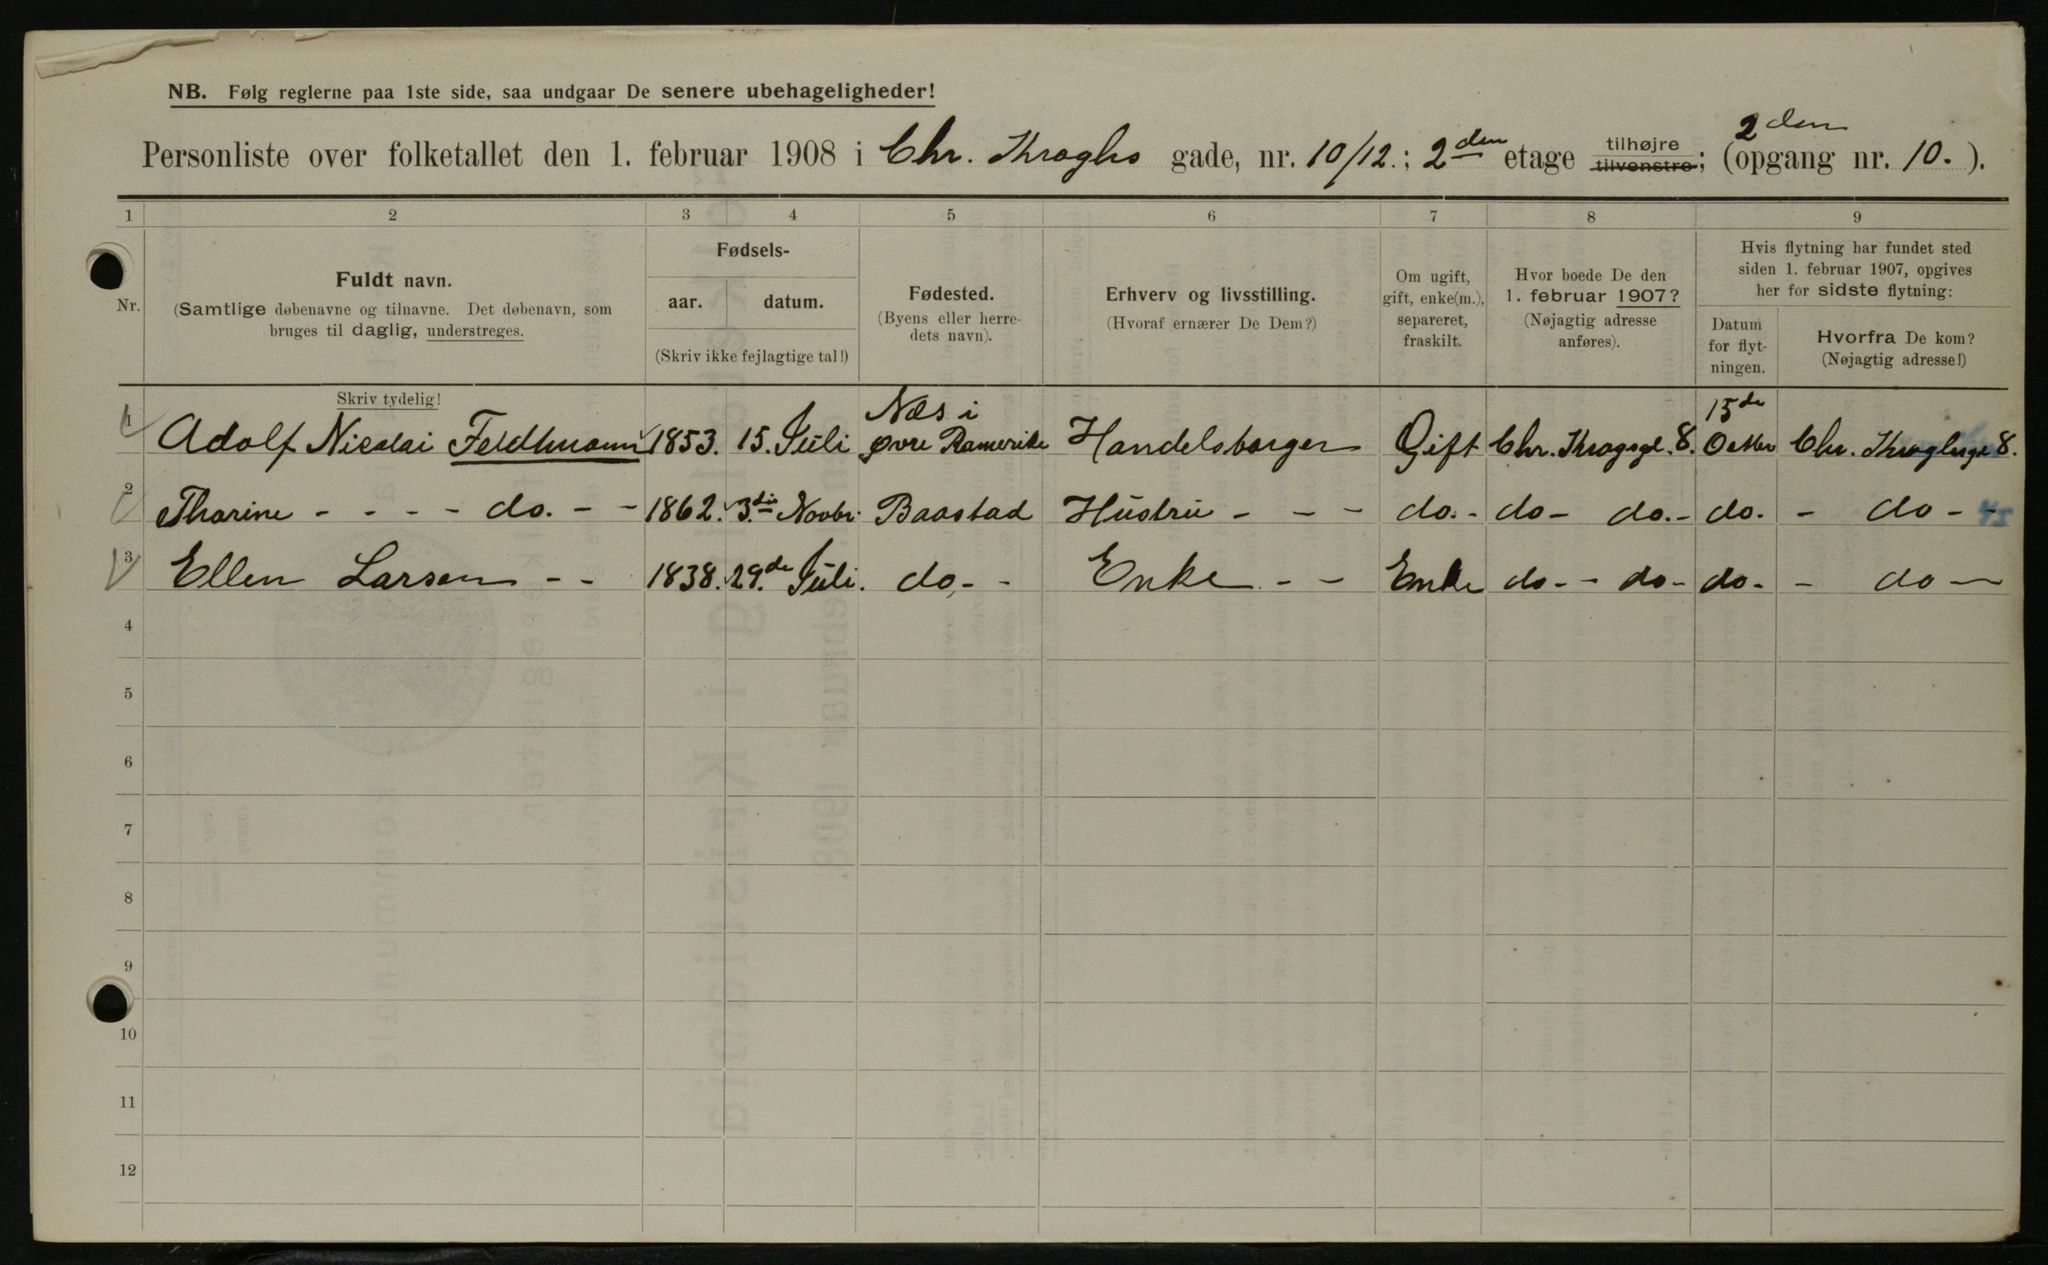 NB. Følg reglerne paa 1ste side, saa undgaar De senere ubehageligheder!
2den
Personliste over folketallet den 1. februar 1908 i Chr. Kroghs gade, nr. 10/12.; 2den etage tilhøjre tilvenstre; (opgang nr. 10. ).
1 2 3 4 5 6 7 8 9
Nr.
Fuldt navn.
(Samtlige døbenavne og tilnavne. Det døbenavn, som
bruges til daglig, understreges.
Skriv tydelig!
Fødsels-
aar. datum.
(Skriv ikke fejlagtige tal!)
Fødested.
(Byens eller herre-
dets navn).
Erhverv og livsstilling.
(Hvoraf ernærer De Dem?)
Om ugift,
gift, enke(m.),
separeret,
fraskilt.
Hvor boede De den
1. februar 1907?
(Nøjagtig adresse
anføres).
Hvis flytning har fundet sted
siden 1. februar 1907, opgives
her for sidste flytning:
Datum
for flyt-
ningen.
Hvorfra De kom?
(Nøjagtig adresse!)
Næs i 15de
1 Adolf Nicolai Feldtmann 1853. 15. Juli øvre Romerike Handelsborger Gift Chr. Krogsgt. 8. Octbr Chr. Kroghsgt 8.
2 Tharine - - - - do. - - 1862. 3die Novbr. Baastad Hustru - - - do. - do - do. - do. - do - -
3 Ellen Larsen - - 1838. 29de Juli. do. - - Enke - - Enke do - - do - do - - do -
4
5
6
7
8
9
10
11
12